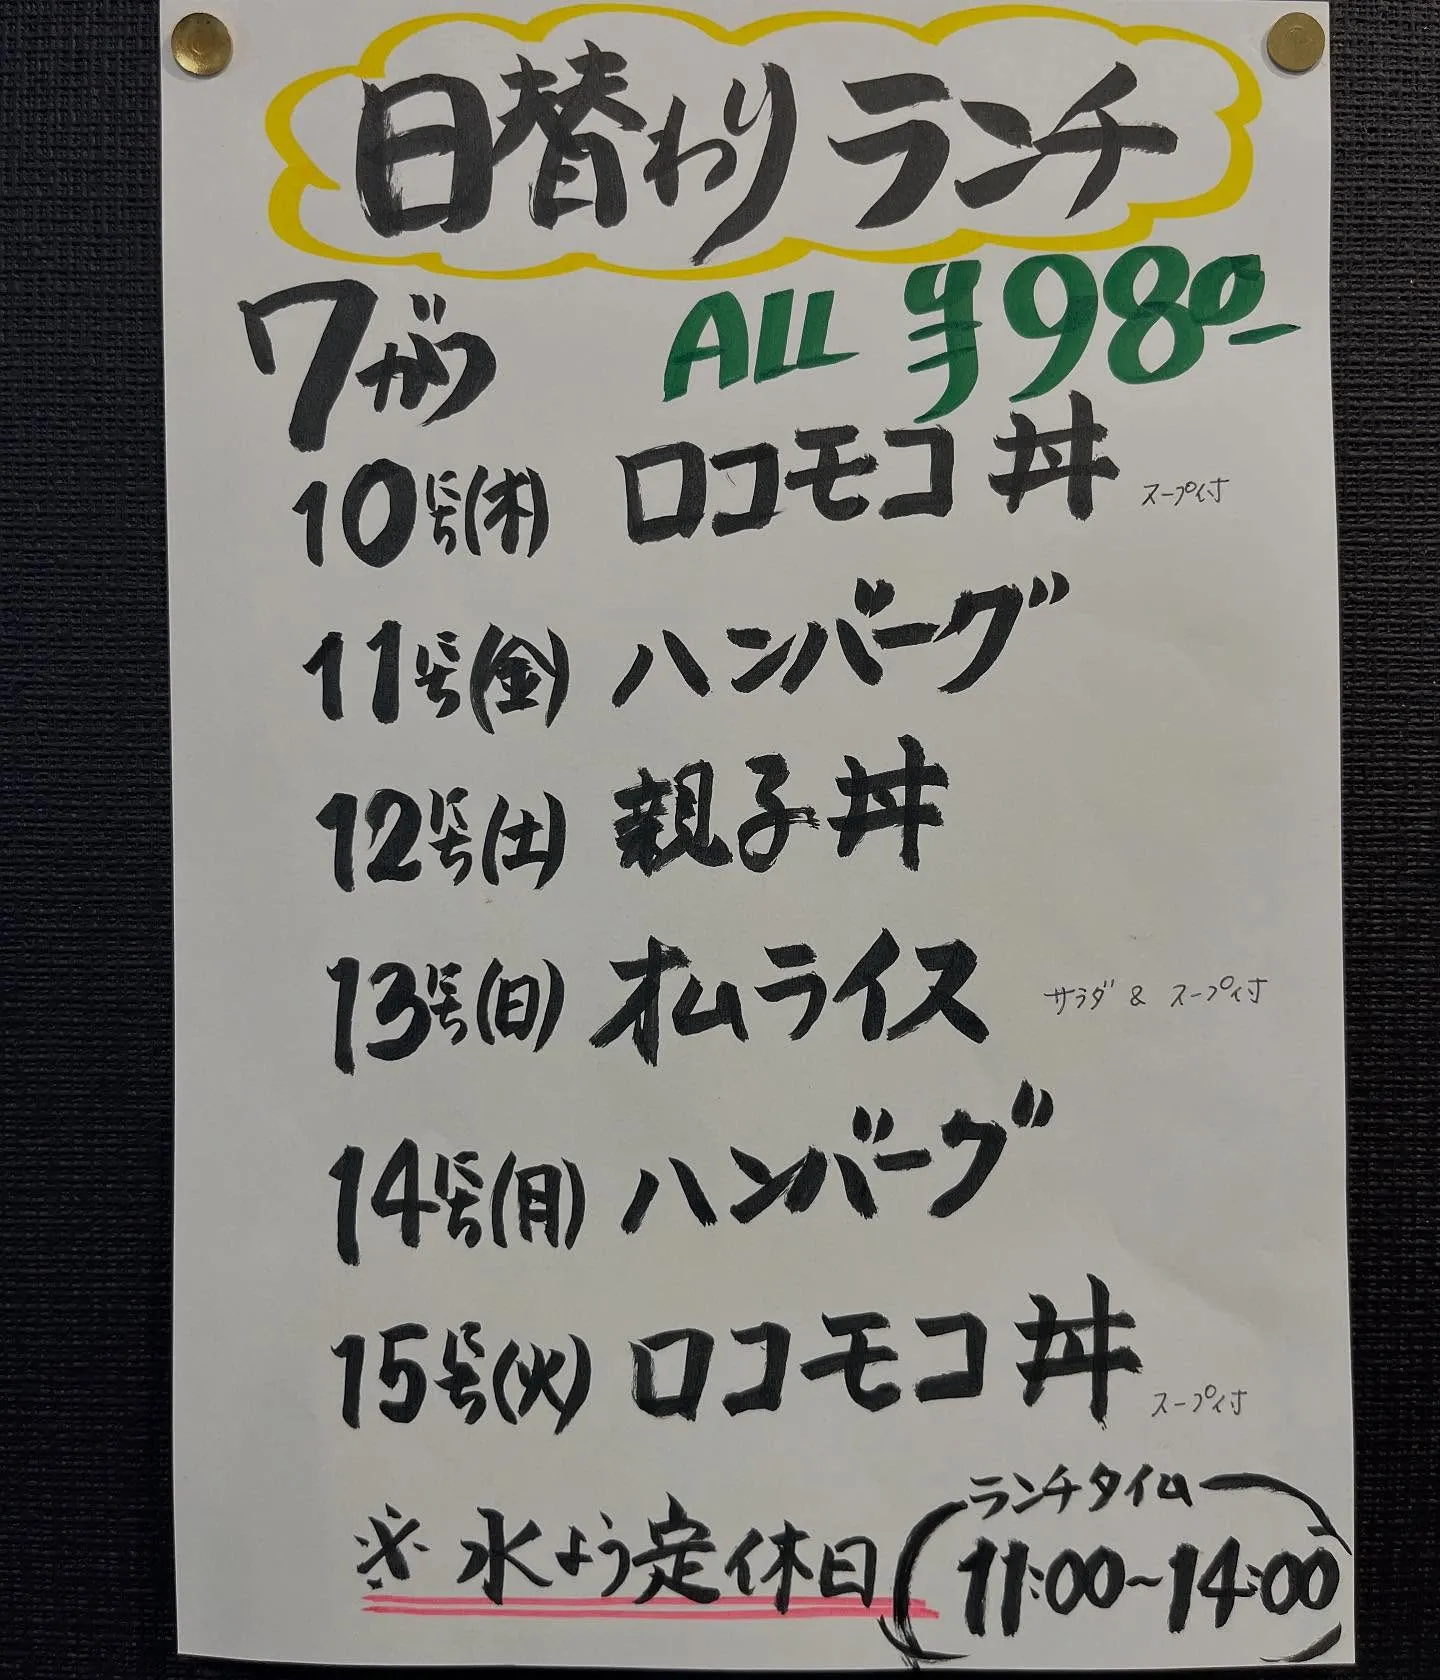 日替わりランチ
7がつ ALL ¥980-
10日(木) ロコモコ丼 スープ付
11日(金) ハンバーグ
12日(土) 親子丼
13日(日) オムライス サラダ & スープ付
14日(月) ハンバーグ
15日(火) ロコモコ丼 スープ付
※水よう定休日
ランチタイム
11:00~14:00